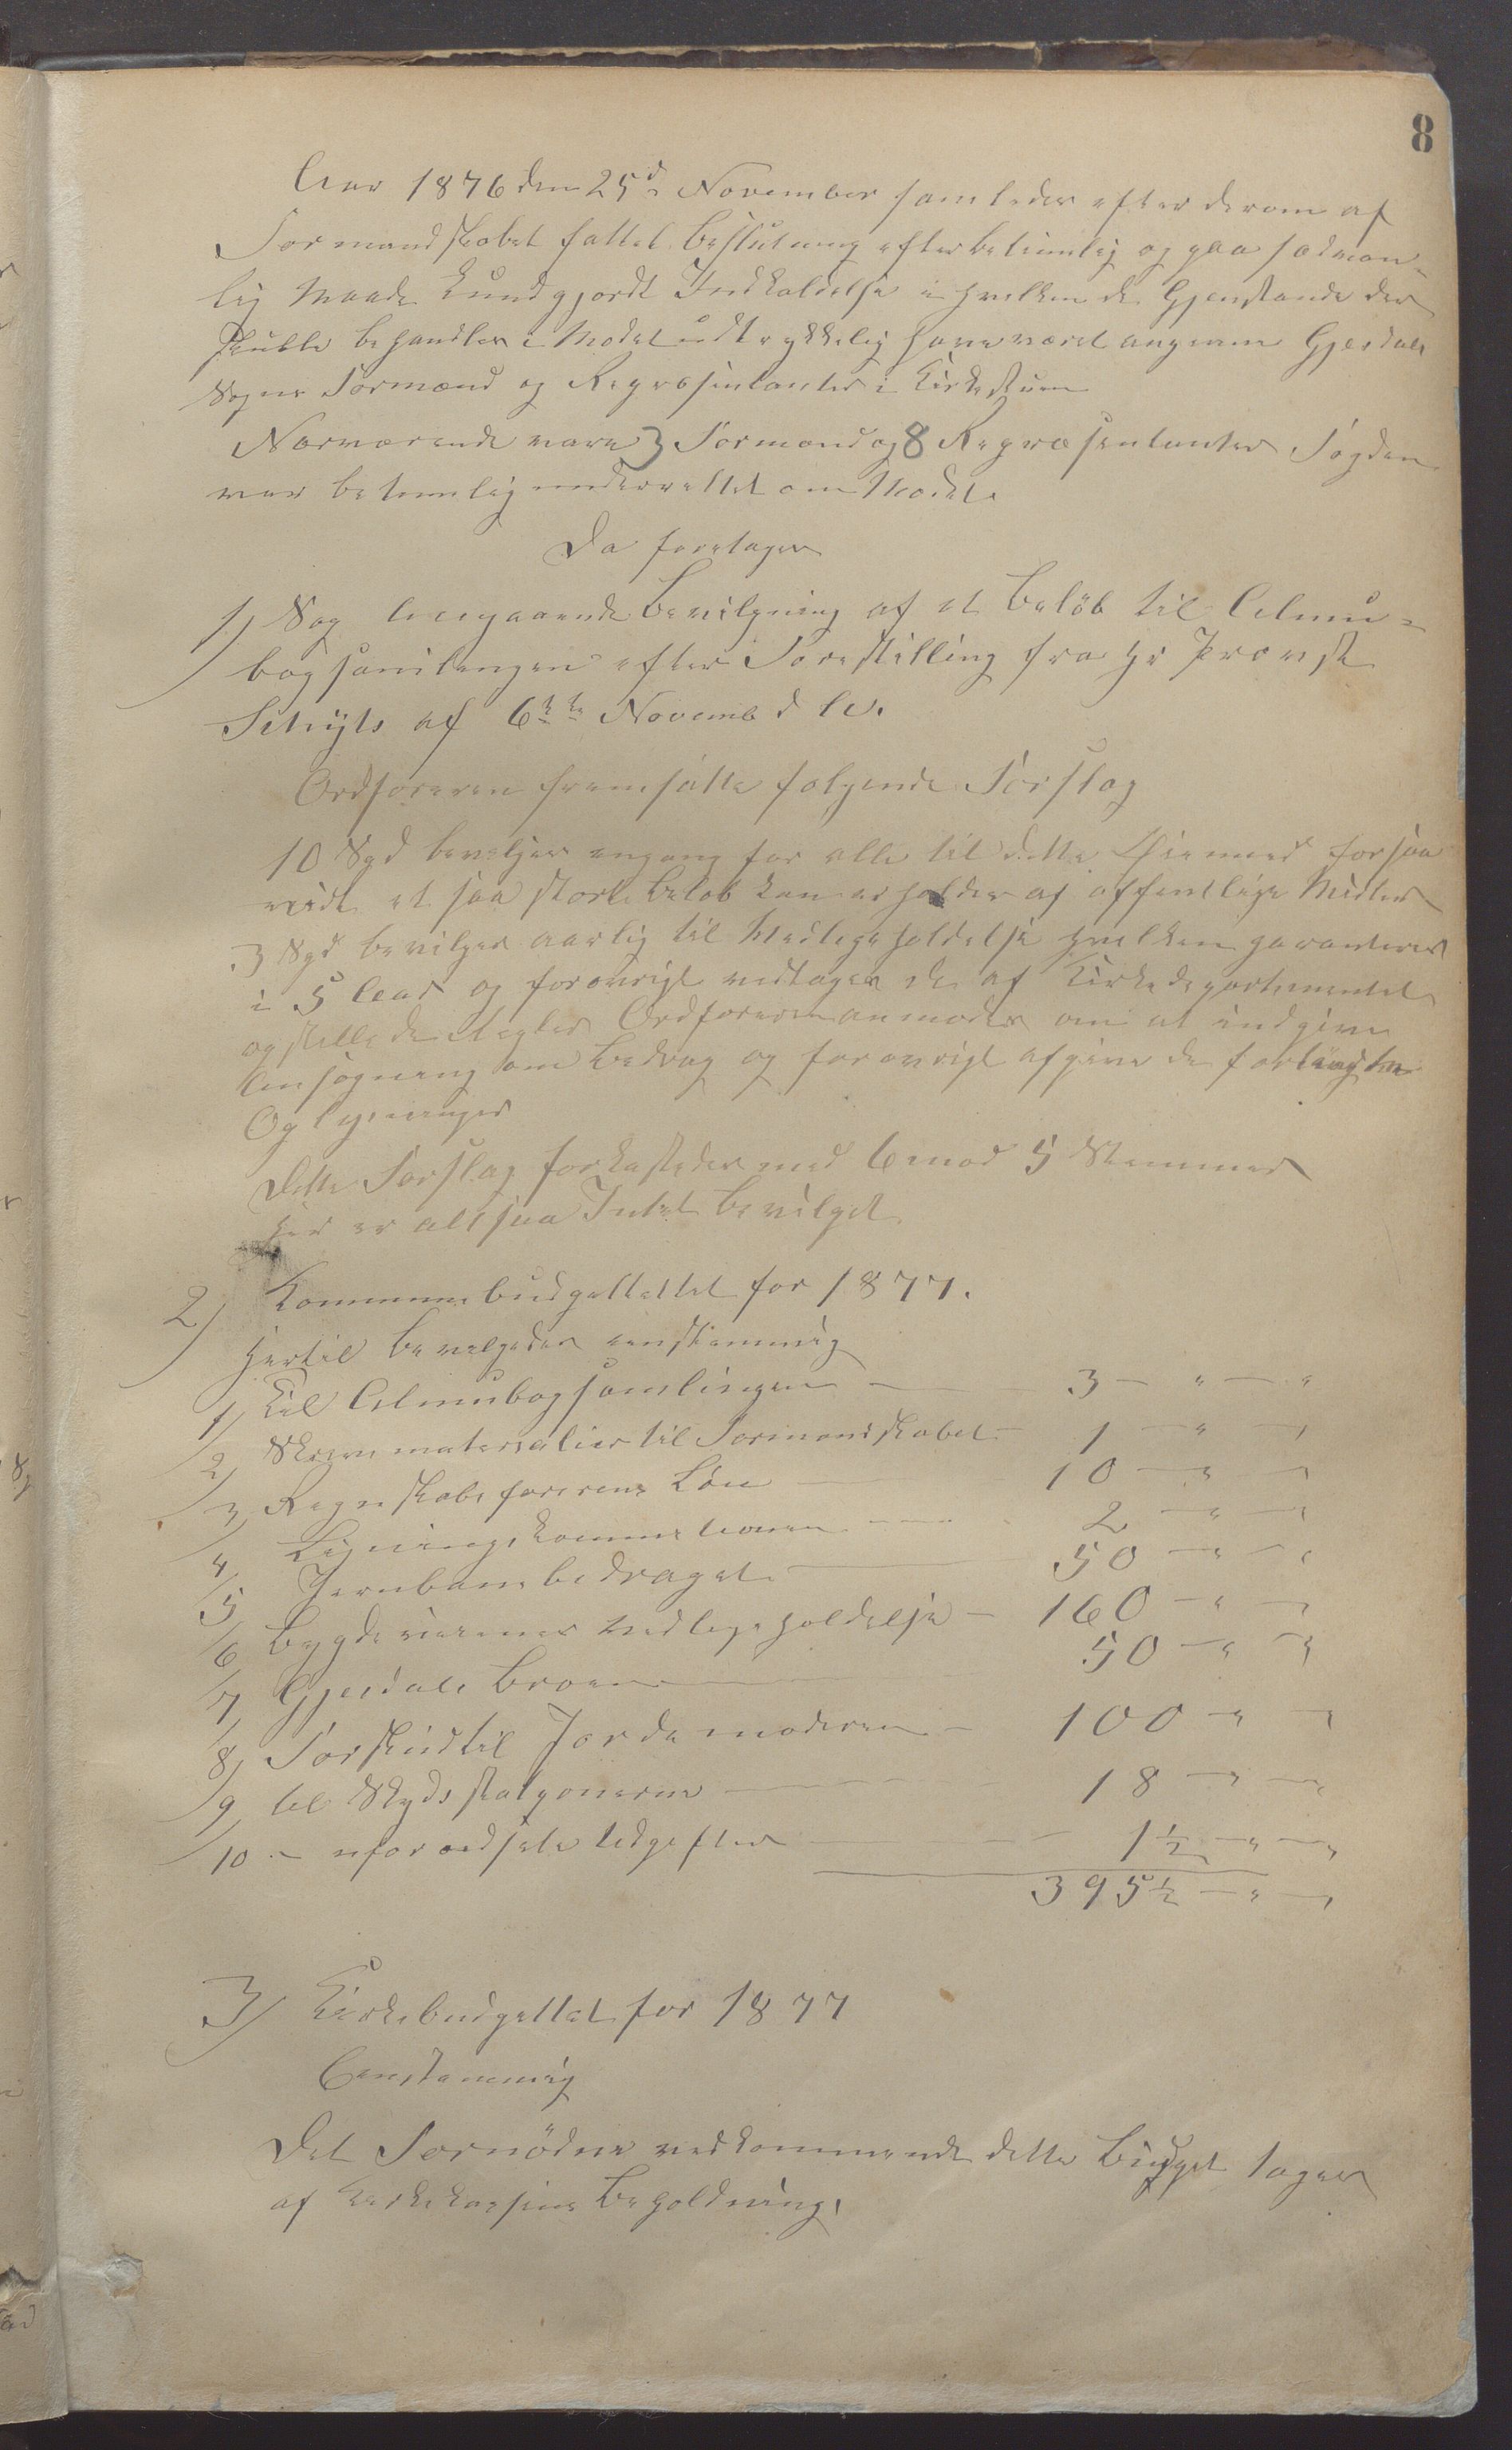 8
Aar 1876 den 25de November samledes efter derom af
Formandskabet fattet Beslutning efter betimelig og paa sædvan-
lig Maade kundgjordt Indkaldelse i hvilken de Gjenstande der
skulle behandles i Mødet udtrykkelig have været angivne Gjesdals
Sogns Formænd og Repræsentanter i Kirkestuen
Nærværende vare 3 Formænd og 8 Repræsentanter Fogden
var betimelig underrettet om Mødet.
Da foretages
1) Sag angaaende Bevilgning af et Beløb til Almu-
bogsamlingen efter Forestilling fra Hr Provst
af 6te Novemb d A.
Ordføreren fremsatte følgende Forslag
10 Spd bevilges engang for alle til dette Øiemed forsaa
vidt et saa stort Beløb kan erholdes af offentlige Midler
3 Spd bevilges aarlig til Vedligeholdelse hvilken garanteres
i 5 Aar og forøvrigt vedtages de af Kirkedepartementet
opstillede Regler Ordføreren anmodes om at indgive
Ansøgning om Bidrag og forøvrigt afgive de forlangte
Oplysninger
Dette Forslag forkastedes med 6 mod 5 Stemmer
Her er altsaa Intet bevilget
2) Kommunebudgettettet for 1877.
Hertil bevilgedes eenstemmig
1) Til Almubogsamlingen — 3 — " — "
2) Skrivematerialier til Formandskabet — 1 — " — "
3) Regnskabsførerens Løn — 10 — " — "
4) Ligningskommisionen — 2 — " — "
5) Jernbanebidraget — 50 — " — "
6) Bygdeveienes Vedligeholdelse — 160 — " — "
7) Gjesdals Broen — 50 — " — "
8) Forskud til Jordemoderen — 100 — " — "
9) til Skydsstatjonerne — 18 — " — "
10 — uforudseete Udgifter — 1½ — " — "
395½ — " — "
3) Kirkebudgettet for 1877
Eenstemmig
Det Fornødne vedkommende dette Budget tages
af Kirkekassens Beholdning.